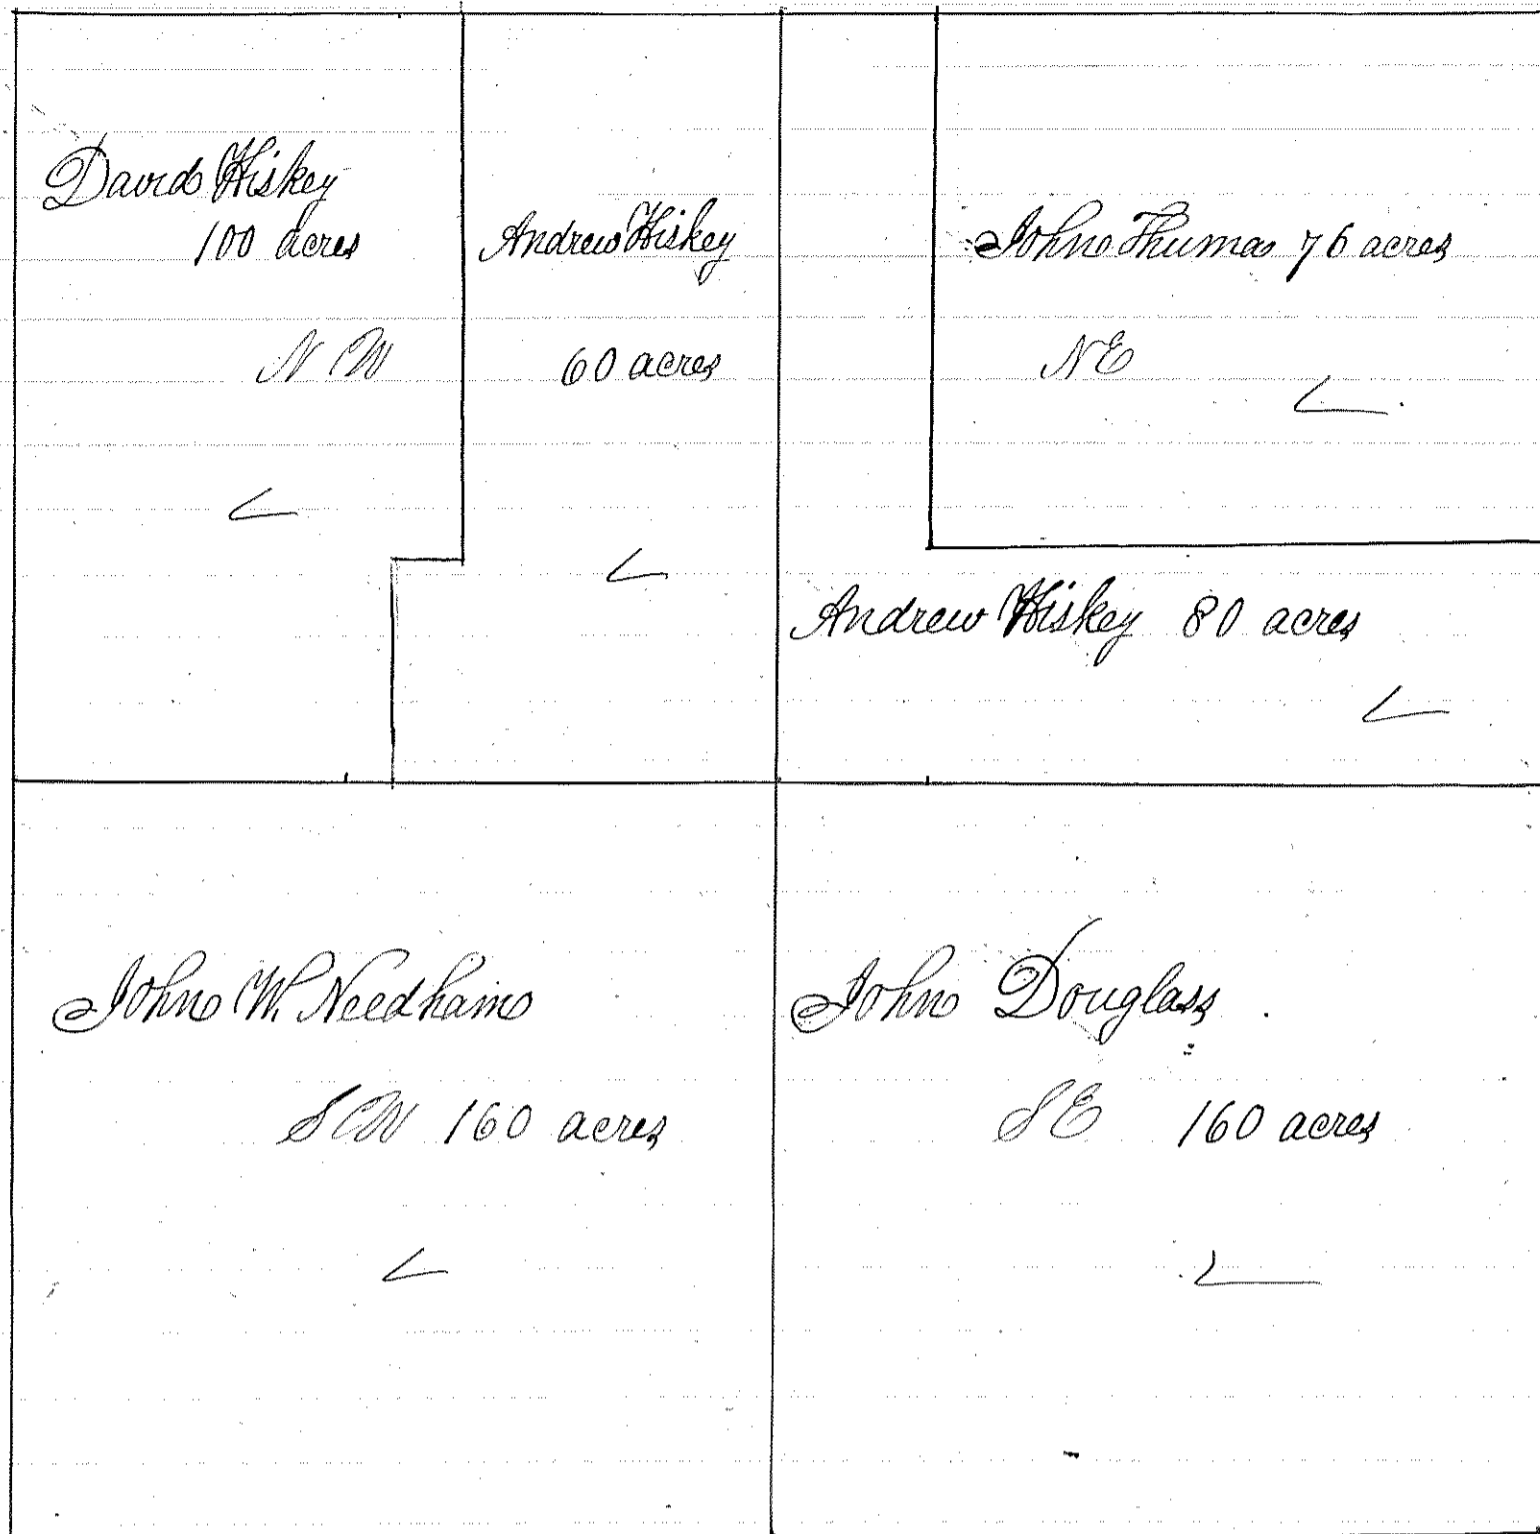 David Hiskey
100 acres
N W
Andrew Hiskey
60 acres
John Thuma 76 acres
N E
Andrew Hiskey 80 acres
John W. Needham
S W 160 acres
John Douglass
S E 160 acres